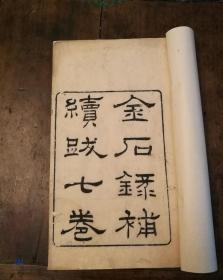 金石錄補
續跋七卷